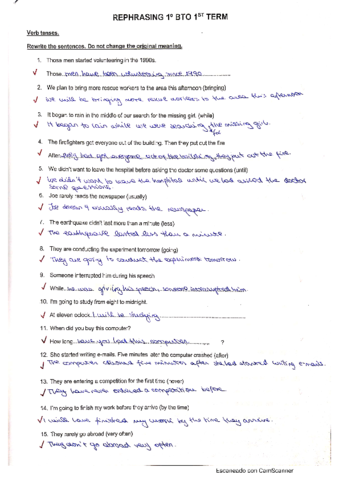 REPHRASING 1º BTO 1ST TERM
Verb tenses.
Rewrite the sentences. Do not change the original meaning.
1. Those men started volunteering in the 1990s.
Those men have been volunteering since 1990
2. We plan to bring more rescue workers to the area this afternoon (bringing)
We will be bringing more rescue workers to the area this afternoon
3. It began to rain in the middle of our search for the missing girl. (while)
It began to rain while we were searching the missing girl.
for
4. The firefighters got everyone out of the building. Then they put out the fire
After they had got everyone out of the building, they put out the fire
5. We didn't want to leave the hospital before asking the doctor some questions (until)
We didn't want to leave the hospital until we had asked the doctor
some questions
6. Joe rarely reads the newspaper (usually)
Joe doesn't usually reads the newspaper
7. The earthquake didn't last more than a minute (less)
The earthquake lasted less than a minute.
8. They are conducting the experiment tomorrow (going)
They are going to conduct the experiment tomorrow.
9. Someone interrupted him during his speech
While he was giving his speech, someone interrupted him
10. I'm going to study from eight to midnight.
At eleven oclock I will be studying
11. When did you buy this computer?
How long have you had this computer ?
12. She started writing e-mails. Five minutes later the computer crashed (after)
The computer crashed five minutes after she had started writing e-mails.
13. They are entering a competition for the first time (never)
They have never entered a competition before
14. I'm going to finish my work before they arrive (by the time)
I will have finished my work by the time they arrive.
15. They rarely go abroad (very often)
They don't go abroad very often.
Escaneado con CamScanner